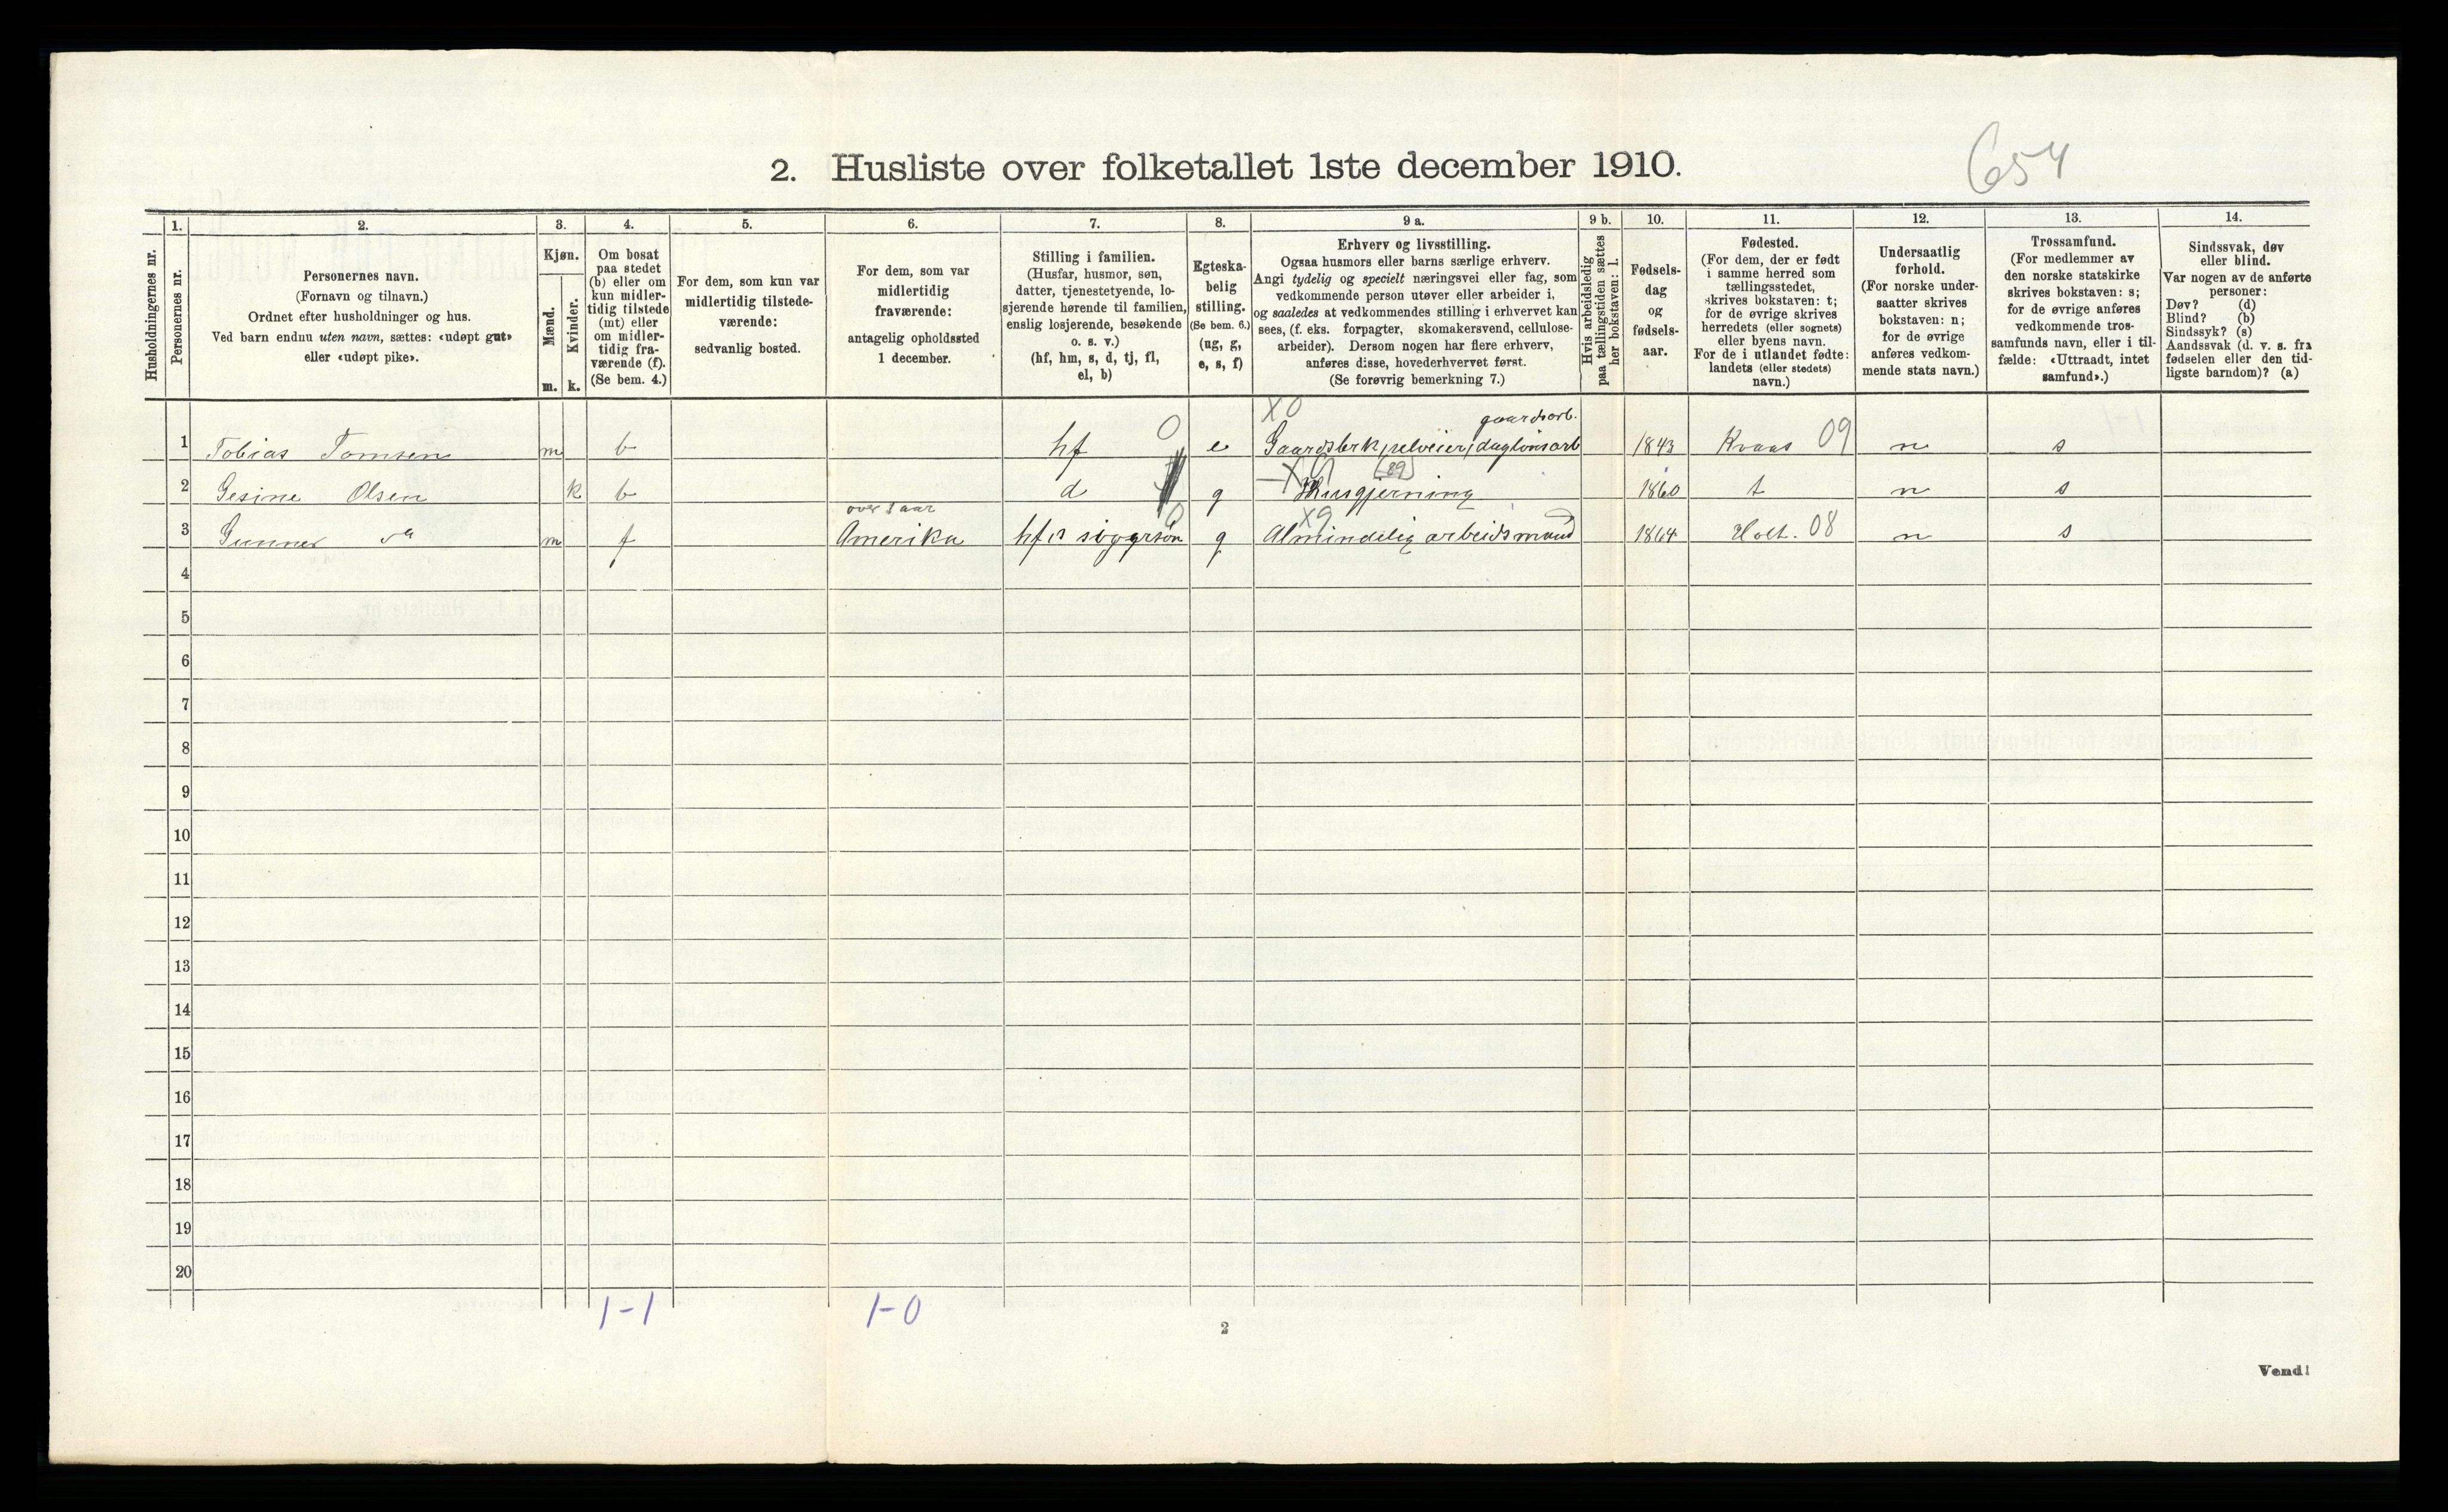 654
2. Husliste over folketallet 1ste december 1910.
1. 2. 3. 4. 5. 6. 7. 8. 9 a. 9 b. 10. 11. 12. 13. 14.
Husholdningernes nr.
Personernes nr.
Personernes navn.
(Fornavn og tilnavn.)
Ordnet efter husholdninger og hus.
Ved barn endnu uten navn, sættes: «udøpt gut»
eller «udøpt pike».
Kjøn.
Mænd.
m.
Kvinder.
k.
Om bosat
paa stedet
(b) eller om
kun midler-
tidig tilstede
(mt) eller
om midler-
tidig fra-
værende (f).
(Se bem. 4.)
For dem, som kun var
midlertidig tilstede-
værende:
sedvanlig bosted.
For dem, som var
midlertidig
fraværende:
antagelig opholdssted
1 december.
Stilling i familien.
(Husfar, husmor, søn,
datter, tjenestetyende, lo-
sjerende hørende til familien,
enslig losjerende, besøkende
o. s. v.)
(hf, hm, s, d, tj, fl,
el, b)
Egteska-
belig
stilling.
(Se bem. 6.)
(ug, g,
e, s, f)
Erhverv og livsstilling.
Ogsaa husmors eller barns særlige erhverv.
Angi tydelig og specielt næringsvei eller fag, som
vedkommende person utøver eller arbeider i,
og saaledes at vedkommendes stilling i erhvervet kan
sees, (f. eks. forpagter, skomakersvend, cellulose-
arbeider). Dersom nogen har flere erhverv,
anføres disse, hovederhvervet først.
(Se forøvrig bemerkning 7.)
Hvis arbeidsledig
paa tællingstiden sættes
her bokstaven: l.
Fødsels-
dag
og
fødsels-
aar.
Fødested.
(For dem, der er født
i samme herred som
tællingsstedet,
skrives bokstaven: t;
for de øvrige skrives
herredets (eller sognets)
eller byens navn.
For de i utlandet fødte:
landets (eller stedets)
navn.)
Undersaatlig
forhold.
(For norske under-
saatter skrives
bokstaven: n;
for de øvrige
anføres vedkom-
mende stats navn.)
Trossamfund.
(For medlemmer av
den norske statskirke
skrives bokstaven: s;
for de øvrige anføres
vedkommende tros-
samfunds navn, eller i til-
fælde: «Uttraadt, intet
samfund».)
Sindssvak, døv
eller blind.
Var nogen av de anførte
personer:
Døv? (d)
Blind? (b)
Sindssyk? (s)
Aandssvak (d. v. s. fra
fødselen eller den tid-
ligste barndom)? (a)
X0 gaardsarb.
1 Tobias Tomsen m b hf 0 e Gaardsbrk, selveier, daglønsarb 1843 09 n s
X9 (29)
2 Gesine Olsen k b d g Husgjerning 1860 t n s
over 1 aar 0 X9
3 Gunner do m f Amerika hf's g Almindelig arbeidsmand 1864 Holt. 08 n s
4
5
6
7
8
9
10
11
12
13
14
15
16
17
18
19
20
1-1 1-0
2
Vend!